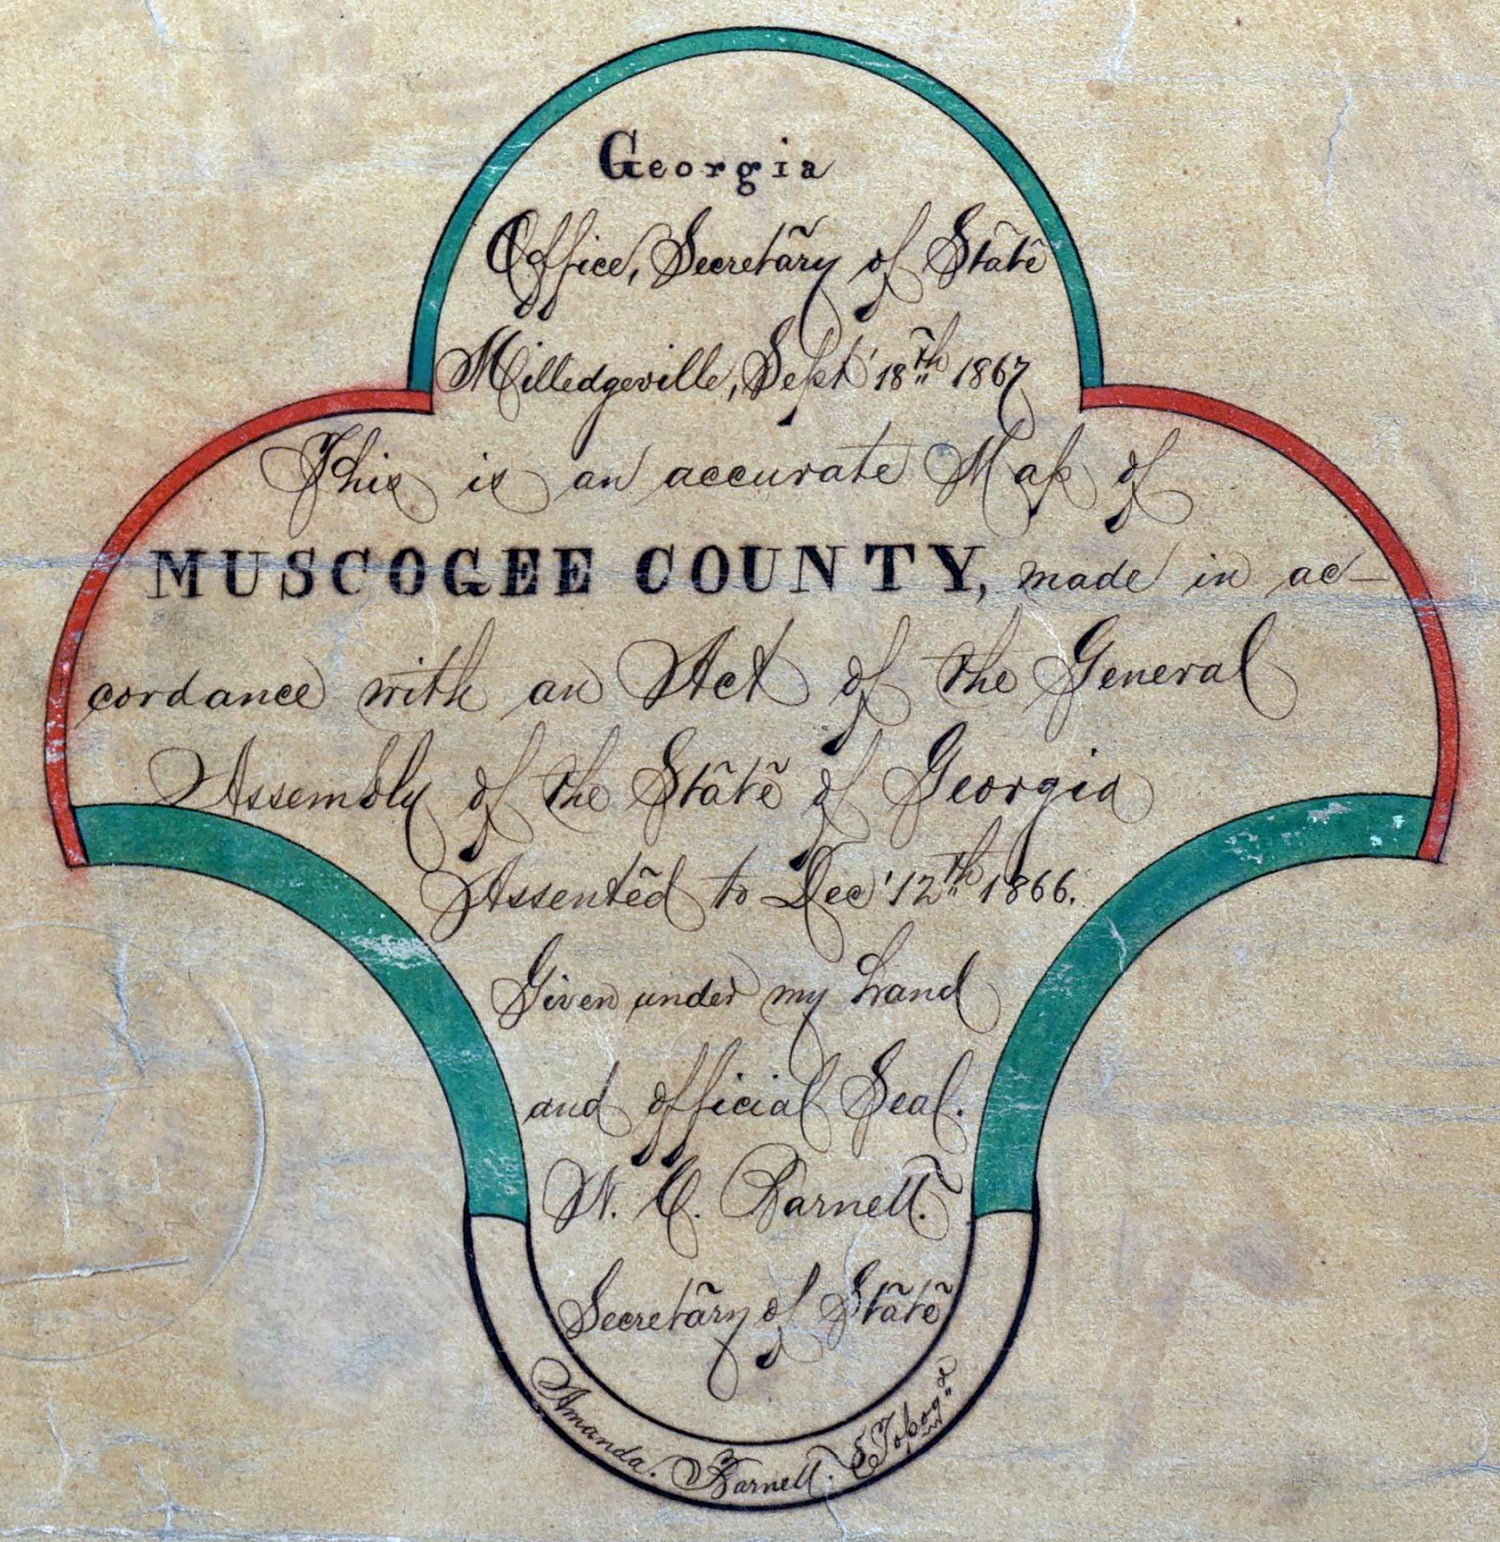 Georgia
Office, Secretary of State
Milledgeville, Sept' 18th 1867
This is an accurate Map of
MUSCOGEE COUNTY, made in ac-
cordance with an Act of the General
Assembly of the State of Georgia
Assented to Dec' 12th 1866.
Given under my hand
and official Seal.
N. C. Barnett.
Secretary of State
Amanda. Barnett.